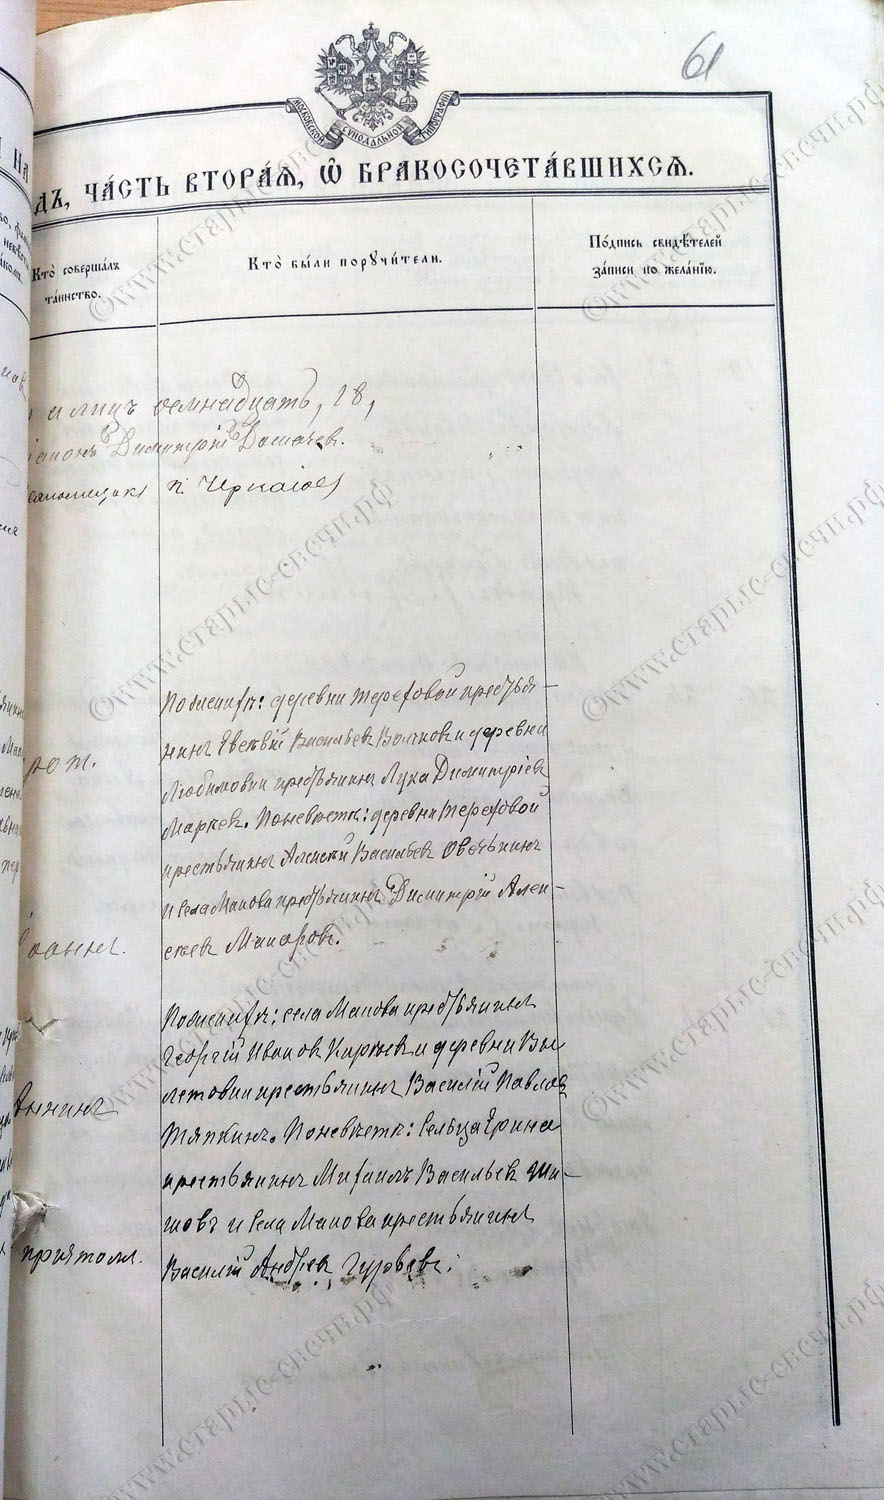 61
МОСКОВСКОЙ СУНОДАЛЬНОЙ ТИПОГРАФІИ
ДЪ, ЧА́СТЬ ВТОРА́Я, Ѡ БРАКОСОЧЕТА́ВШИХСЯ.
Кто̀ соверша́лъ
та́инство.
Кто̀ бы́ли поручи́тели.
По́дпись свидѣ́телей
за́писи по жела́нію.
и лицъ осмнадцать, 18,
Димитрій
п. Черкасов
рот.
По женихѣ: деревни Тереховой кресть-
янинъ Евсевій Васильев Волчков и деревни
Любимовки крестьянинъ Лука Димитріев
Маркев. По невѣстѣ: деревни Тереховой
крестьянинъ Алексѣй Васильев Овечкинъ
и села Макова крестьянинъ Димитрій Алек-
сѣев Макаровъ.
Іоаннъ.
По женихѣ: села Макова крестьянинъ
Георгій Иванов Киреев и деревни Вы
летовки крестьянинъ Василій Павлов
Тяпкинъ. По невѣстѣ: Сельца Ерина
крестьянинъ Михаилъ Васильев Ши-
шовъ и Села Макова крестьянинъ
Василій Андреев Гурьевъ.
©www.старые-свечи.рф